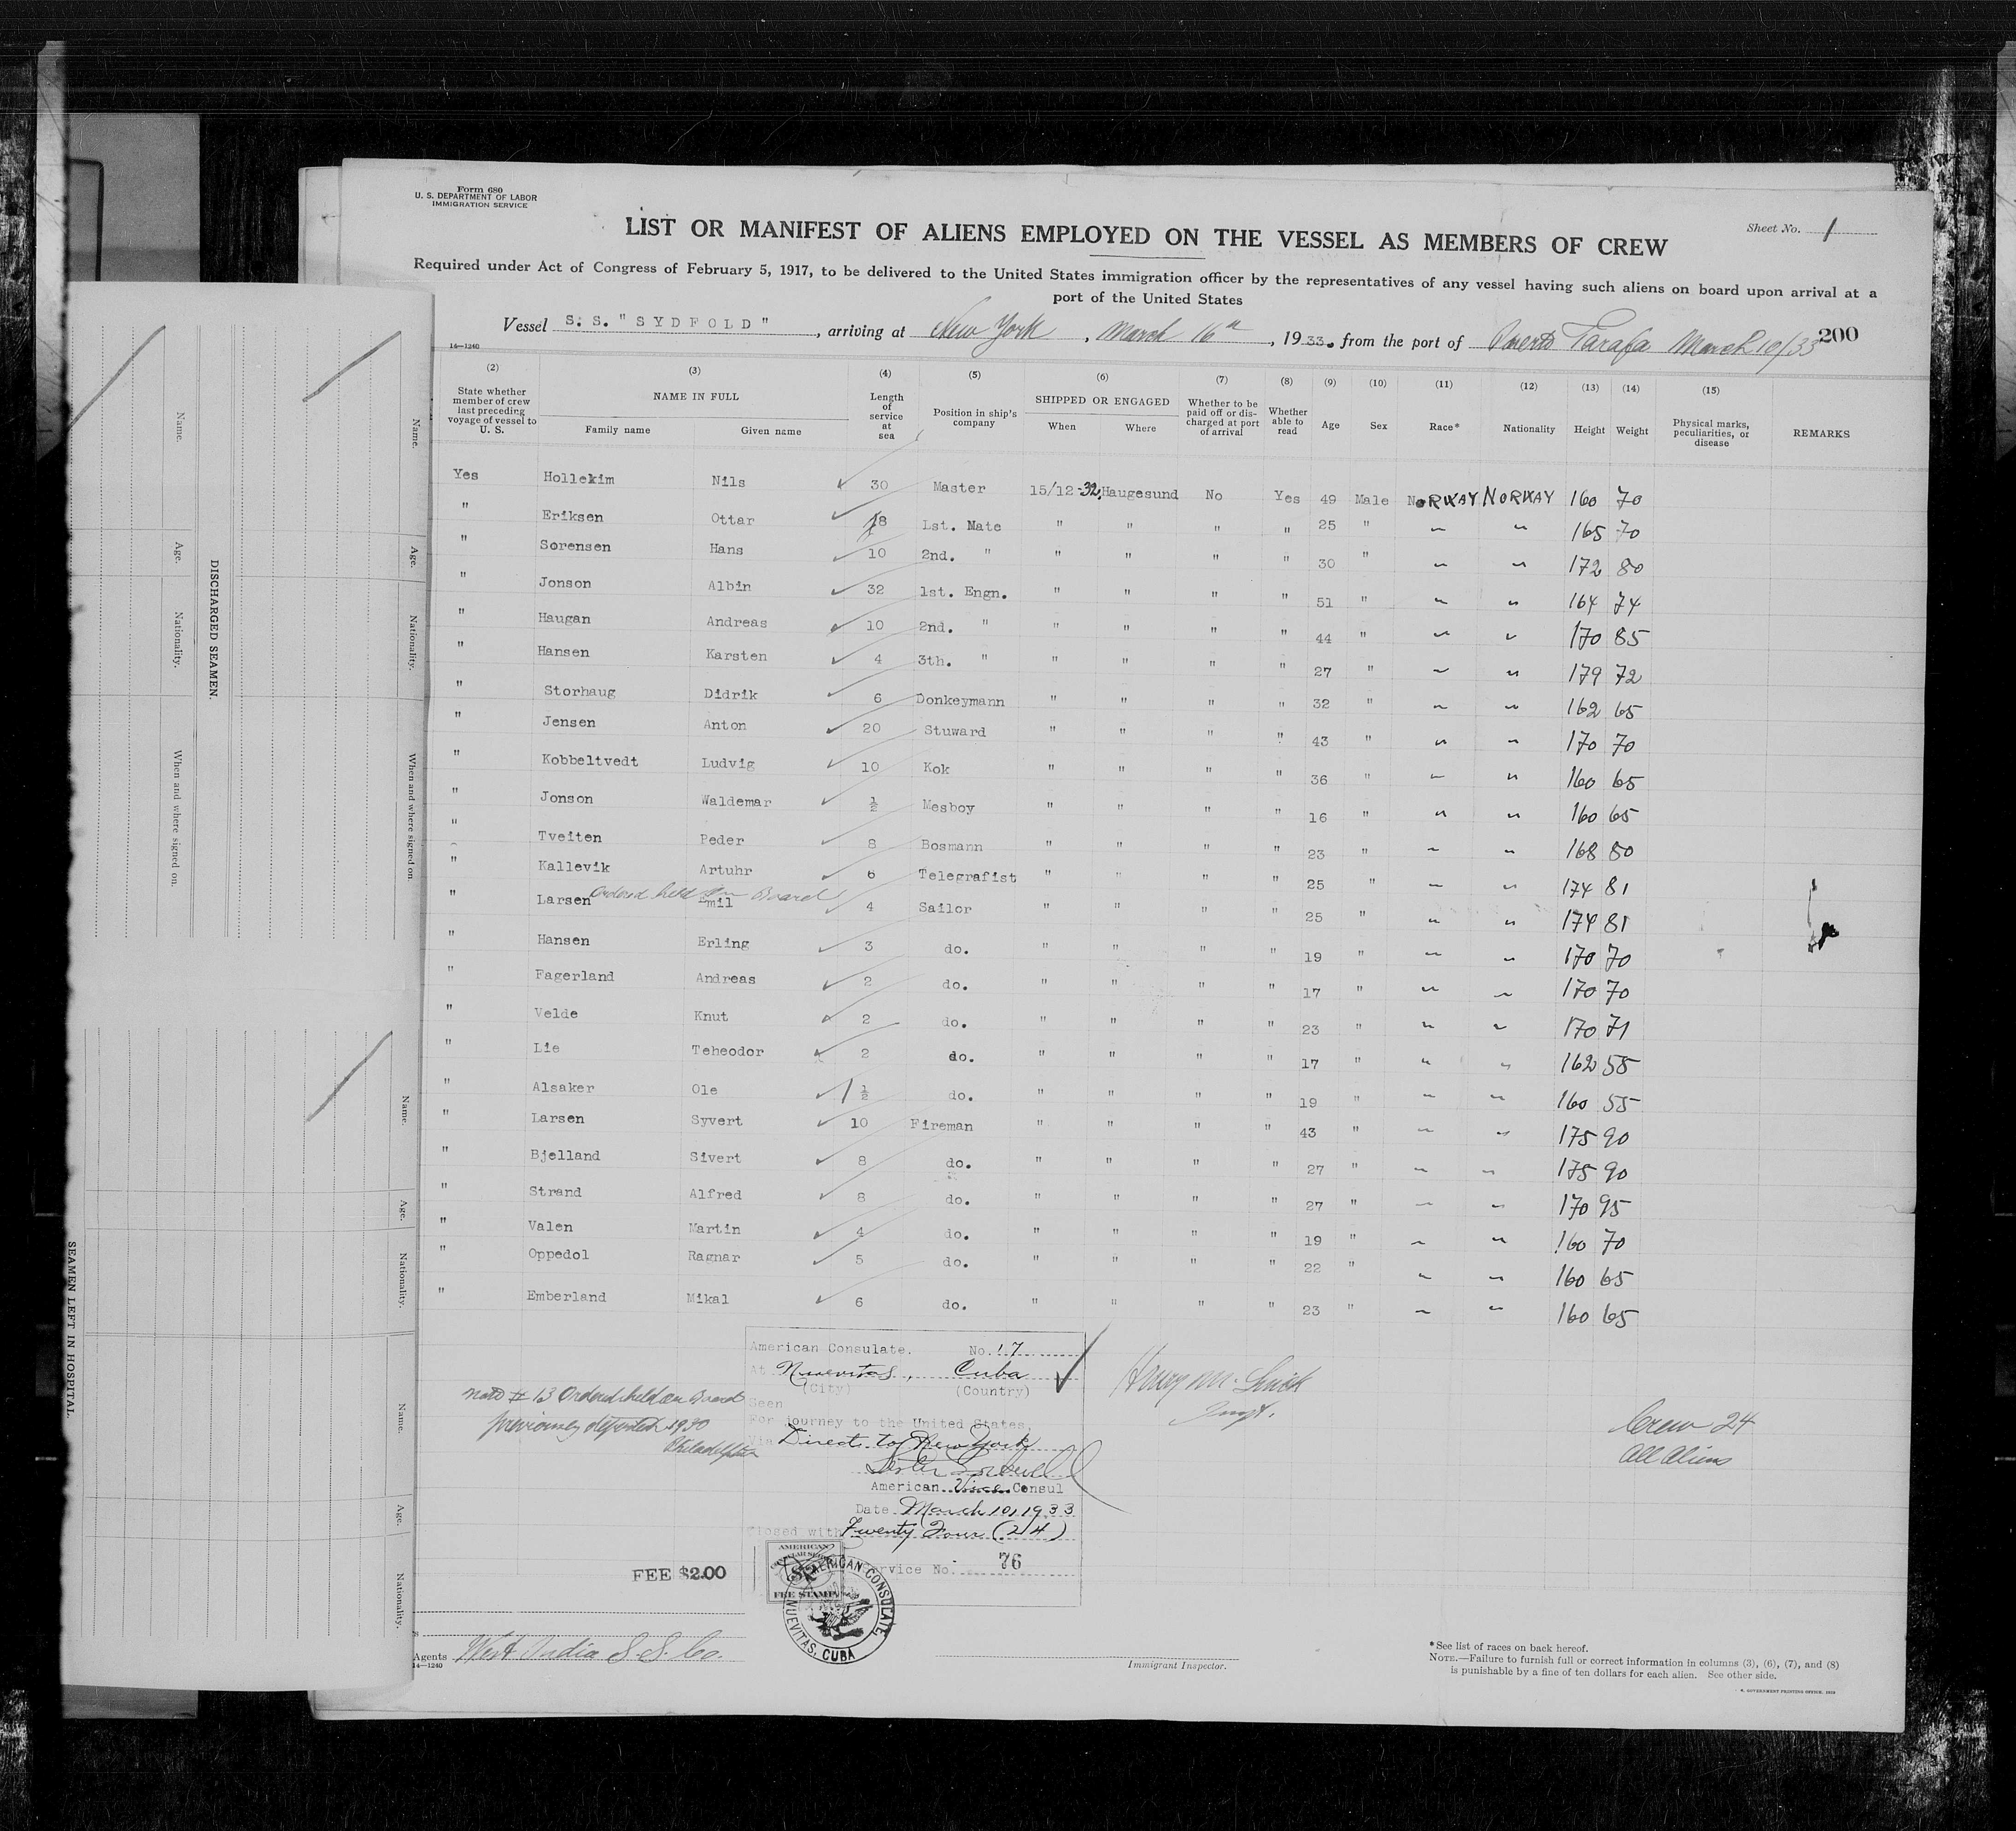 Form 680
U. S. DEPARTMENT OF LABOR
IMMIGRATION SERVICE
LIST OR MANIFEST OF ALIENS EMPLOYED ON THE VESSEL AS MEMBERS OF CREW
Sheet No. 1
Required under Act of Congress of February 5, 1917, to be delivered to the United States immigration officer by the representatives of any vessel having such aliens on board upon arrival at a
port of the United States
Vessel S. S. "SYDFOLD", arriving at New York, March 16th, 1933. from the port of Puerto Tarafa March 10/33 200
14—1240
(2) (3) (4) (5) (6) (7) (8) (9) (10) (11) (12) (13) (14) (15)
State whether member of crew last preceding voyage of vessel to U. S. NAME IN FULL Family name Given name Length of service at sea Position in ship's company SHIPPED OR ENGAGED When Where Whether to be paid off or discharged at port of arrival Whether able to read Age Sex Race* Nationality Height Weight Physical marks, peculiarities, or disease REMARKS
Yes Hollekim Nils 30 Master 15/12-32. Haugesund No Yes 49 Male NORWAY NORWAY 160 70
" Eriksen Ottar 8 1st. Mate " " " " 25 " " " 165 70
" Sorensen Hans 10 2nd. " " " " " 30 " " " 172 80
" Jonson Albin 32 1st. Engn. " " " " 51 " " " 164 74
" Haugan Andreas 10 2nd. " " " " " 44 " " " 170 85
" Hansen Karsten 4 3th. " " " " " 27 " " " 179 72
" Storhaug Didrik 6 Donkeymann " " " " 32 " " " 162 65
" Jensen Anton 20 Stuward " " " " 43 " " " 170 70
" Kobbeltvedt Ludvig 10 Kok " " " " 36 " " " 160 65
" Jonson Waldemar ½ Mesboy " " " " 16 " " " 160 65
" Tveiten Peder 8 Bosmann " " " " 23 " " " 168 80
" Kallevik Artuhr 6 Telegrafist " " " " 25 " " " 174 81
Ordered held on Board
" Larsen Emil 4 Sailor " " " " 25 " " " 174 81
" Hansen Erling 3 do. " " " " 19 " " " 170 70
" Fagerland Andreas 2 do. " " " " 17 " " " 170 70
" Velde Knut 2 do. " " " " 23 " " " 170 71
" Lie Teheodor 2 do. " " " " 17 " " " 162 58
" Alsaker Ole 1½ do. " " " " 19 " " " 160 55
" Larsen Syvert 10 Fireman " " " " 43 " " " 175 90
" Bjelland Sivert 8 do. " " " " 27 " " " 175 90
" Strand Alfred 8 do. " " " " 27 " " " 170 95
" Valen Martin 4 do. " " " " 19 " " " 160 70
" Oppedol Ragnar 5 do. " " " " 22 " " " 160 65
" Emberland Mikal 6 do. " " " " 23 " " " 160 65
American Consulate. No. 17
At Nuevitas, Cuba
(City) (Country)
Seen
For journey to the United States,
Via Direct to New York
American Vice Consul
Date March 10, 1933
Closed with Twenty Four (24)
Service No. 76
note # 13 Ordered held on Board
previously deported 1930
Philadelphia
Crew 24
All Aliens
FEE $2.00
AMERICAN
CONSULAR SERVICE
FEE STAMP
AMERICAN CONSULATE,
NUEVITAS, CUBA
Agents West India S. S. Co.
14—1240
Immigrant Inspector.
*See list of races on back hereof.
NOTE.—Failure to furnish full or correct information in columns (3), (6), (7), and (8)
is punishable by a fine of ten dollars for each alien. See other side.
DISCHARGED SEAMEN.
Name. Age. Nationality. When and where signed on.
Name. Age. Nationality. When and where signed on.
SEAMEN LEFT IN HOSPITAL
Name. Age. Nationality. Name. Age. Nationality.